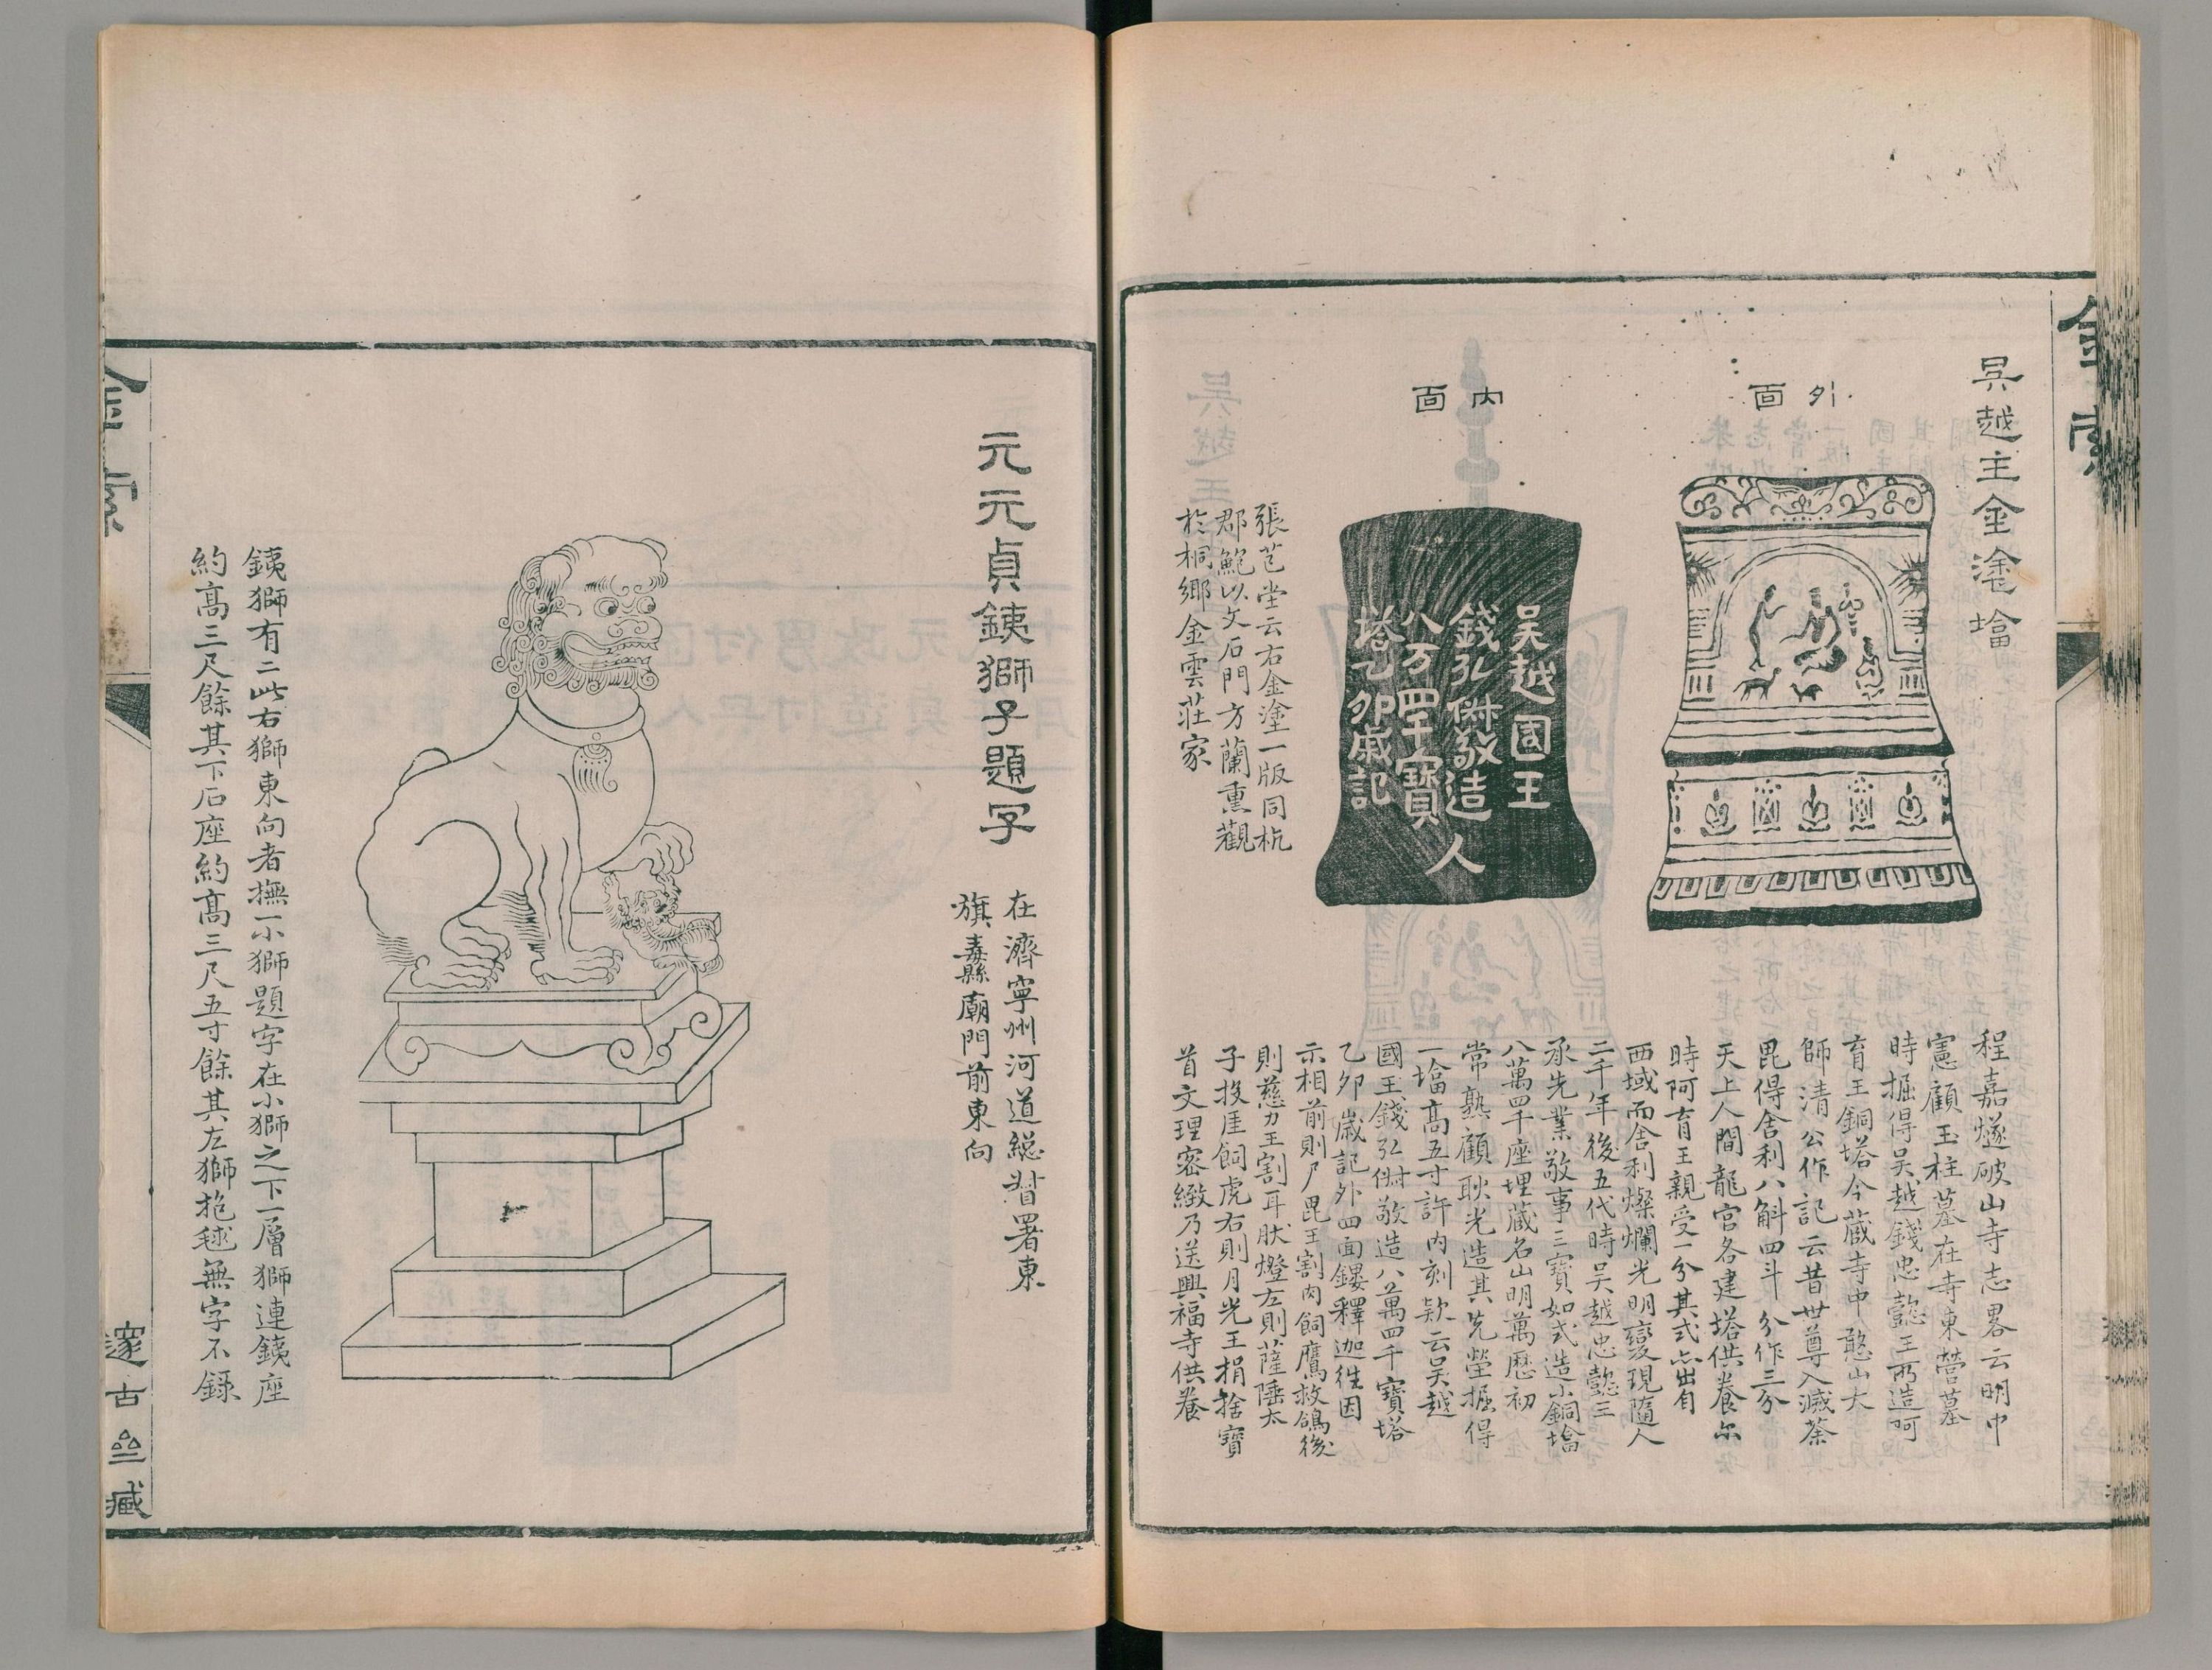 金索
吳越王金塗塔
外面
內面
吳越國王
錢弘俶敬造
八万四千寶
塔乙卯歲記
人
張芑堂云右金塗一版同杭
郡鮑以文石門方蘭熏觀
於桐鄉金雲莊家
程嘉燧破山寺志畧云明中
憲顧玉柱墓在寺東營墓
時掘得吳越錢忠懿王所造阿
育王銅塔今藏寺中憨山大
師清公作記云昔世尊入滅荼
毘得舍利八斛四斗分作三分
天上人間龍宮各建塔供養尔
時阿育王親受一分其式亦出自
西域而舍利燦爛光明變現隨人
二千年後五代時吳越忠懿王
承先業敬事三寶如式造小銅塔
八萬四千座埋藏名山明萬歷初
常熟顧耿光造其先塋掘得
一塔高五寸許內刻款云吳越
國王錢弘俶敬造八萬四千寶塔
乙卯歲記外四面鏤釋迦徃因
示相前則尸毘王割肉飼鷹救鴿後
則慈力王割耳肰燈左則薩埵太
子投厓飼虎右則月光王捐捨寶
首文理密緻乃送興福寺供養
元元貞銕獅子題字
在濟寧州河道總督署東
旗纛廟門前東向
銕獅有二此右獅東向者撫一小獅題字在小獅之下一層獅連銕座
約高三尺餘其下石座約高三尺五寸餘其左獅抱毬無字不錄
金索
邃古齋藏